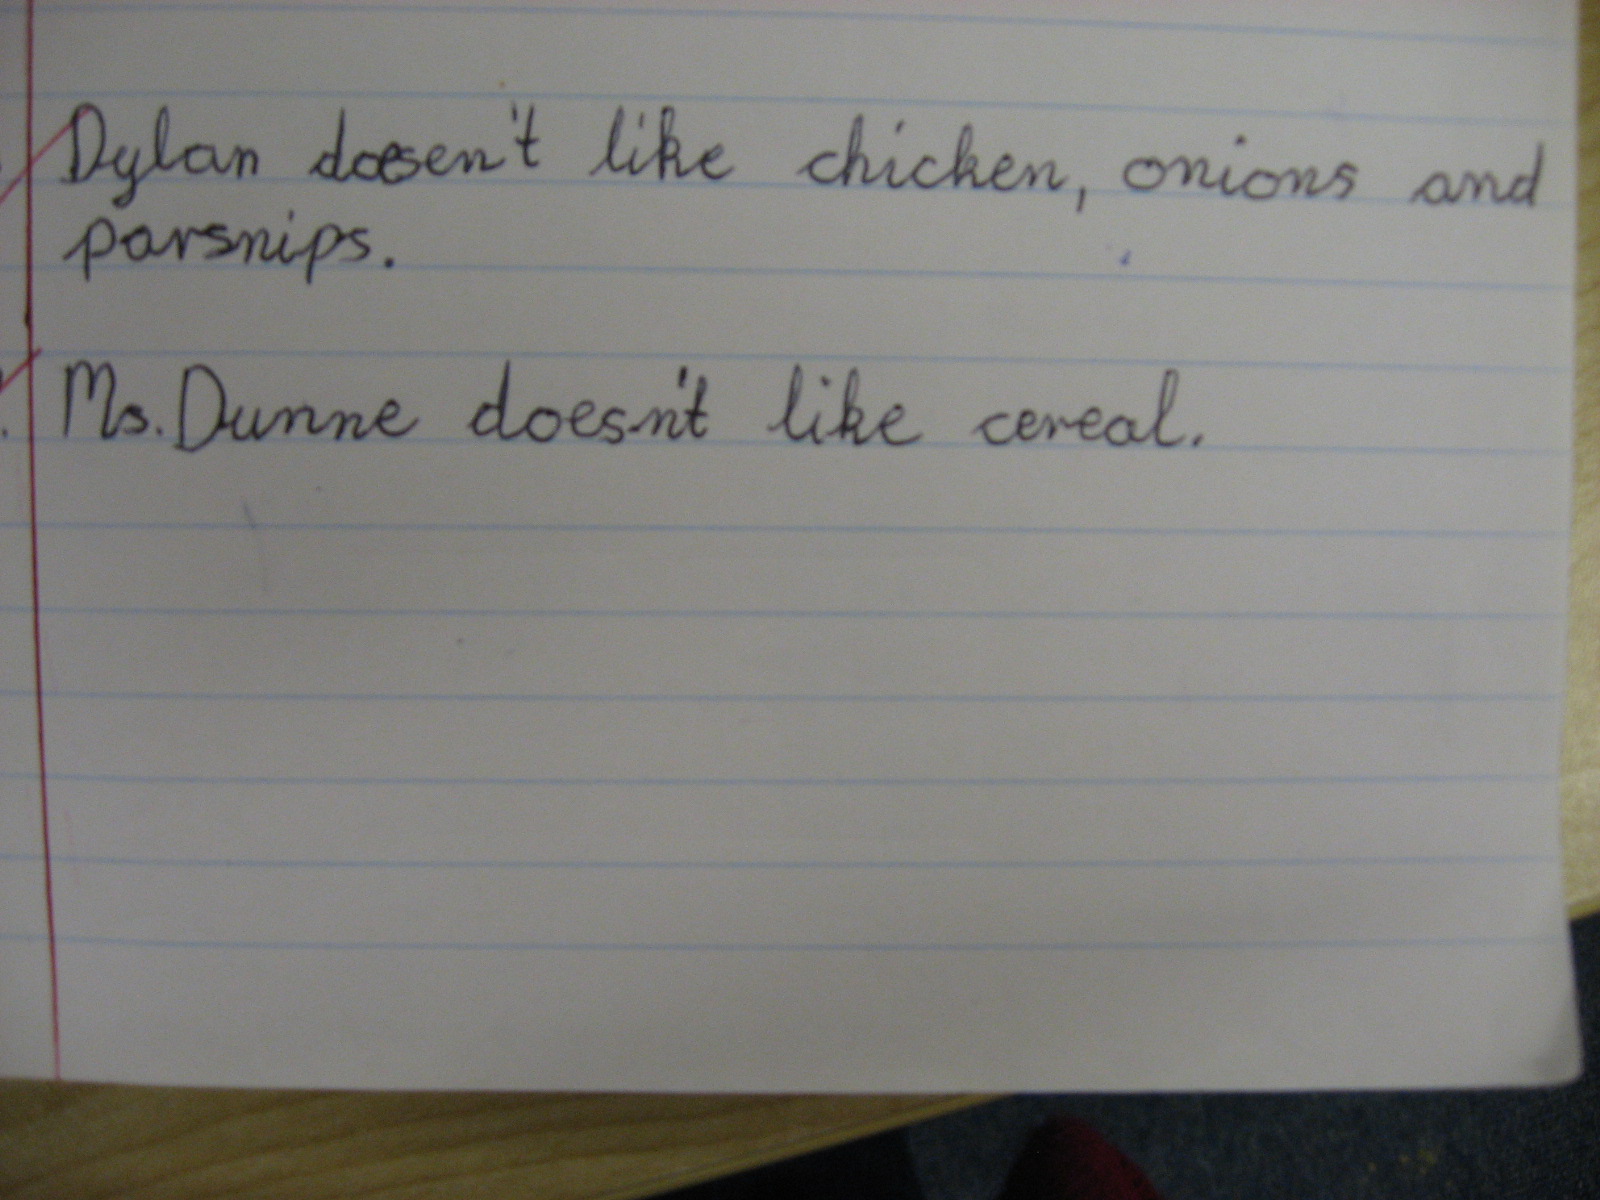 Dylan doesen't like chicken, onions and
parsnips.
Ms. Dunne doesn't like cereal.